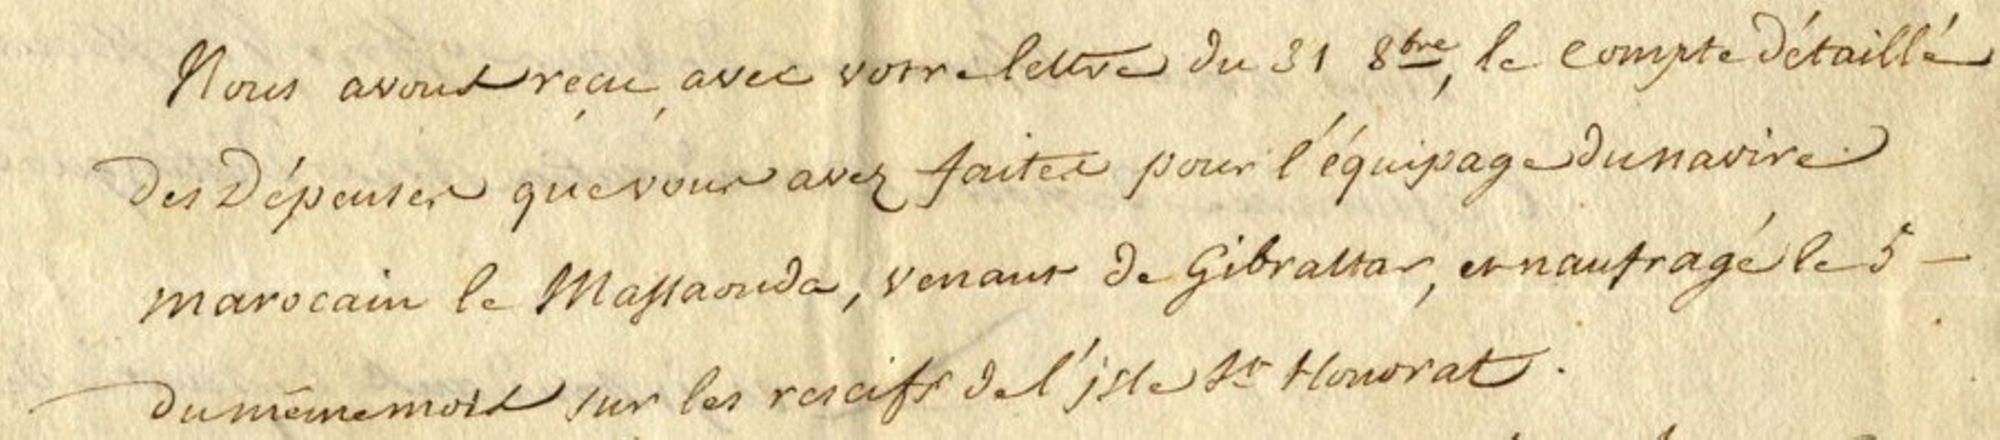 Nous avons reçu, avec votre lettre du 31 8bre, le compte détaillé
des dépenses que vous avez faites pour l'équipage du navire
marocain le Massaouda, venant de Gibraltar, et naufragé le 5 –
du même mois sur les rescifs de l'isle St Honorat.